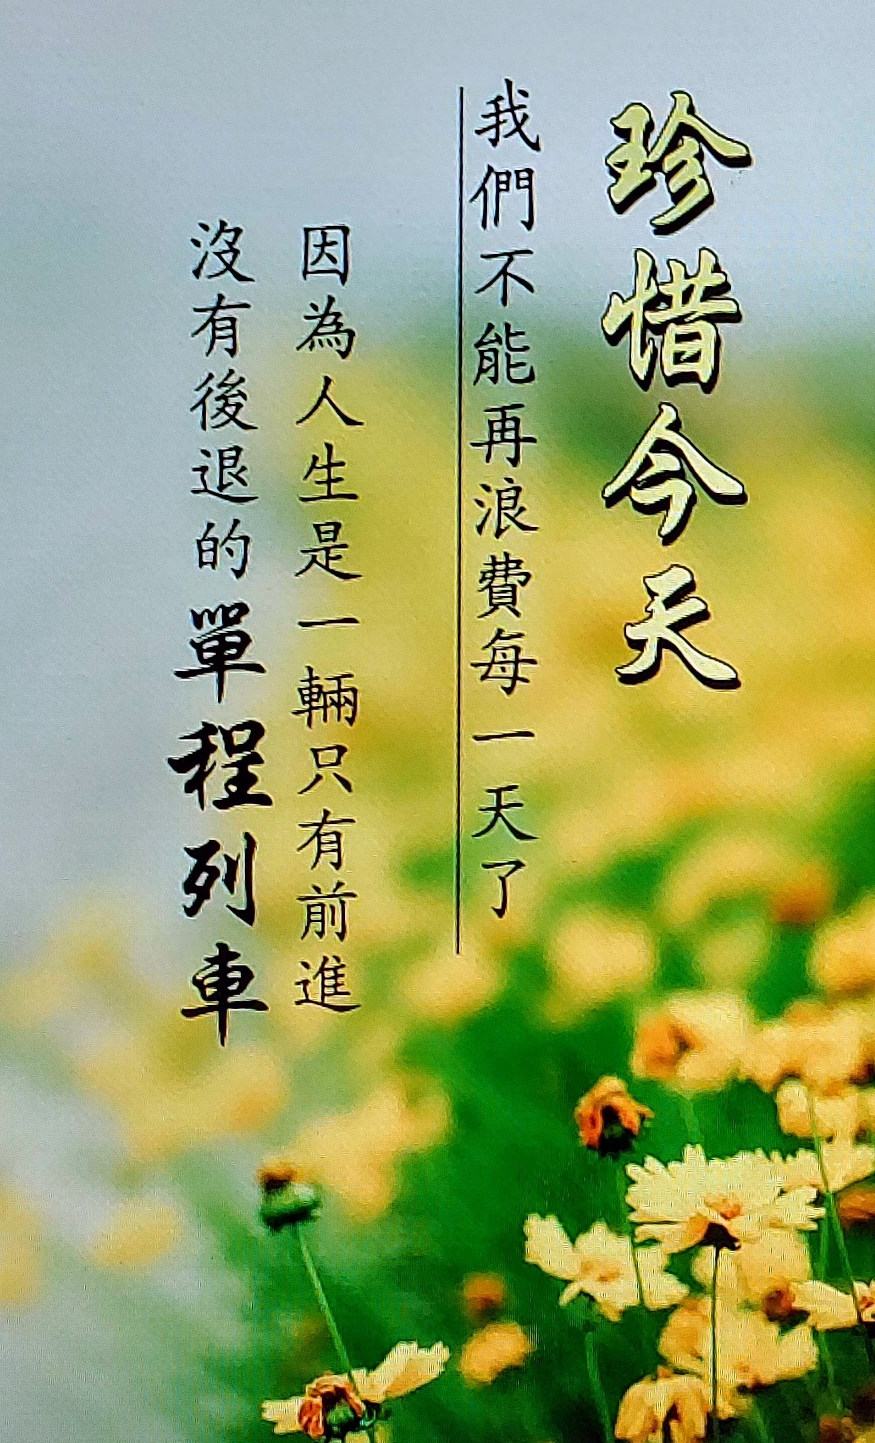 珍惜今天
我們不能再浪費每一天了
因為人生是一輛只有前進
沒有後退的單程列車